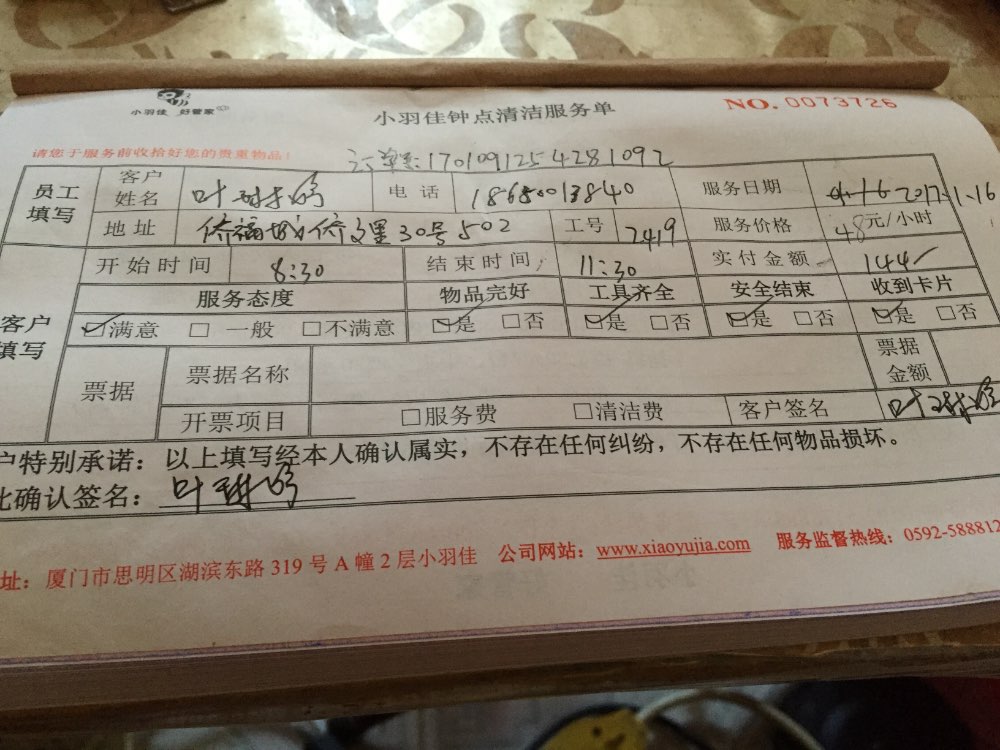 小羽佳 好管家
小羽佳钟点清洁服务单
NO. 0073726
请您于服务前收拾好您的贵重物品!
订单: 1701091254281092
员工填写 客户姓名 叶 电话 18650013840 服务日期 2017.1.16
地址 侨福城侨文里30号502 工号 2419 服务价格 48元/小时
开始时间 8:30 结束时间 11:30 实付金额 144
客户填写 服务态度 物品完好 工具齐全 安全结束 收到卡片
☑满意 □一般 □不满意 ☑是 □否 ☑是 □否 ☑是 □否 ☑是 □否
票据 票据名称 票据金额
开票项目 □服务费 □清洁费 客户签名 叶
户特别承诺:以上填写经本人确认属实,不存在任何纠纷,不存在任何物品损坏。
此确认签名: 叶
址:厦门市思明区湖滨东路319号A幢2层小羽佳 公司网站:www.xiaoyujia.com 服务监督热线:0592-588812